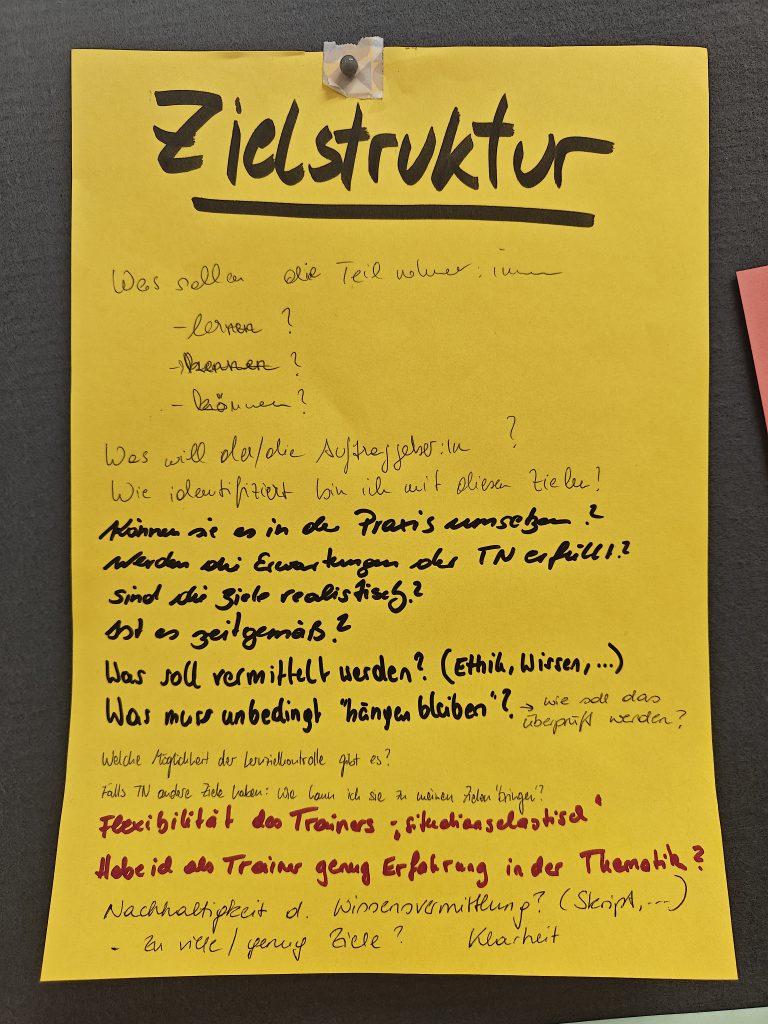 Zielstruktur
Was sollen die Teilnehmer:innen
- lernen ?
- kennen ?
- können ?
Was will der/die Auftraggeber:in ?
Wie identifiziert bin ich mit diesen Zielen?
Können sie es in der Praxis umsetzen?
Werden die Erwartungen der TN erfüllt?
Sind die Ziele realistisch?
Ist es zeitgemäß?
Was soll vermittelt werden? (Ethik, Wissen, ...)
Was muss unbedingt "hängen bleiben"? → wie soll das
überprüft werden?
Welche Möglichkeit der Lernzielkontrolle gibt es?
Falls TN andere Ziele haben: Wie kann ich sie zu meinen Zielen "bringen"?
Flexibilität des Trainers - „situationselastisch"
Habe ich als Trainer genug Erfahrung in der Thematik?
Nachhaltigkeit d. Wissensvermittlung? (Skript, ...)
- zu viele / genug Ziele? Klarheit